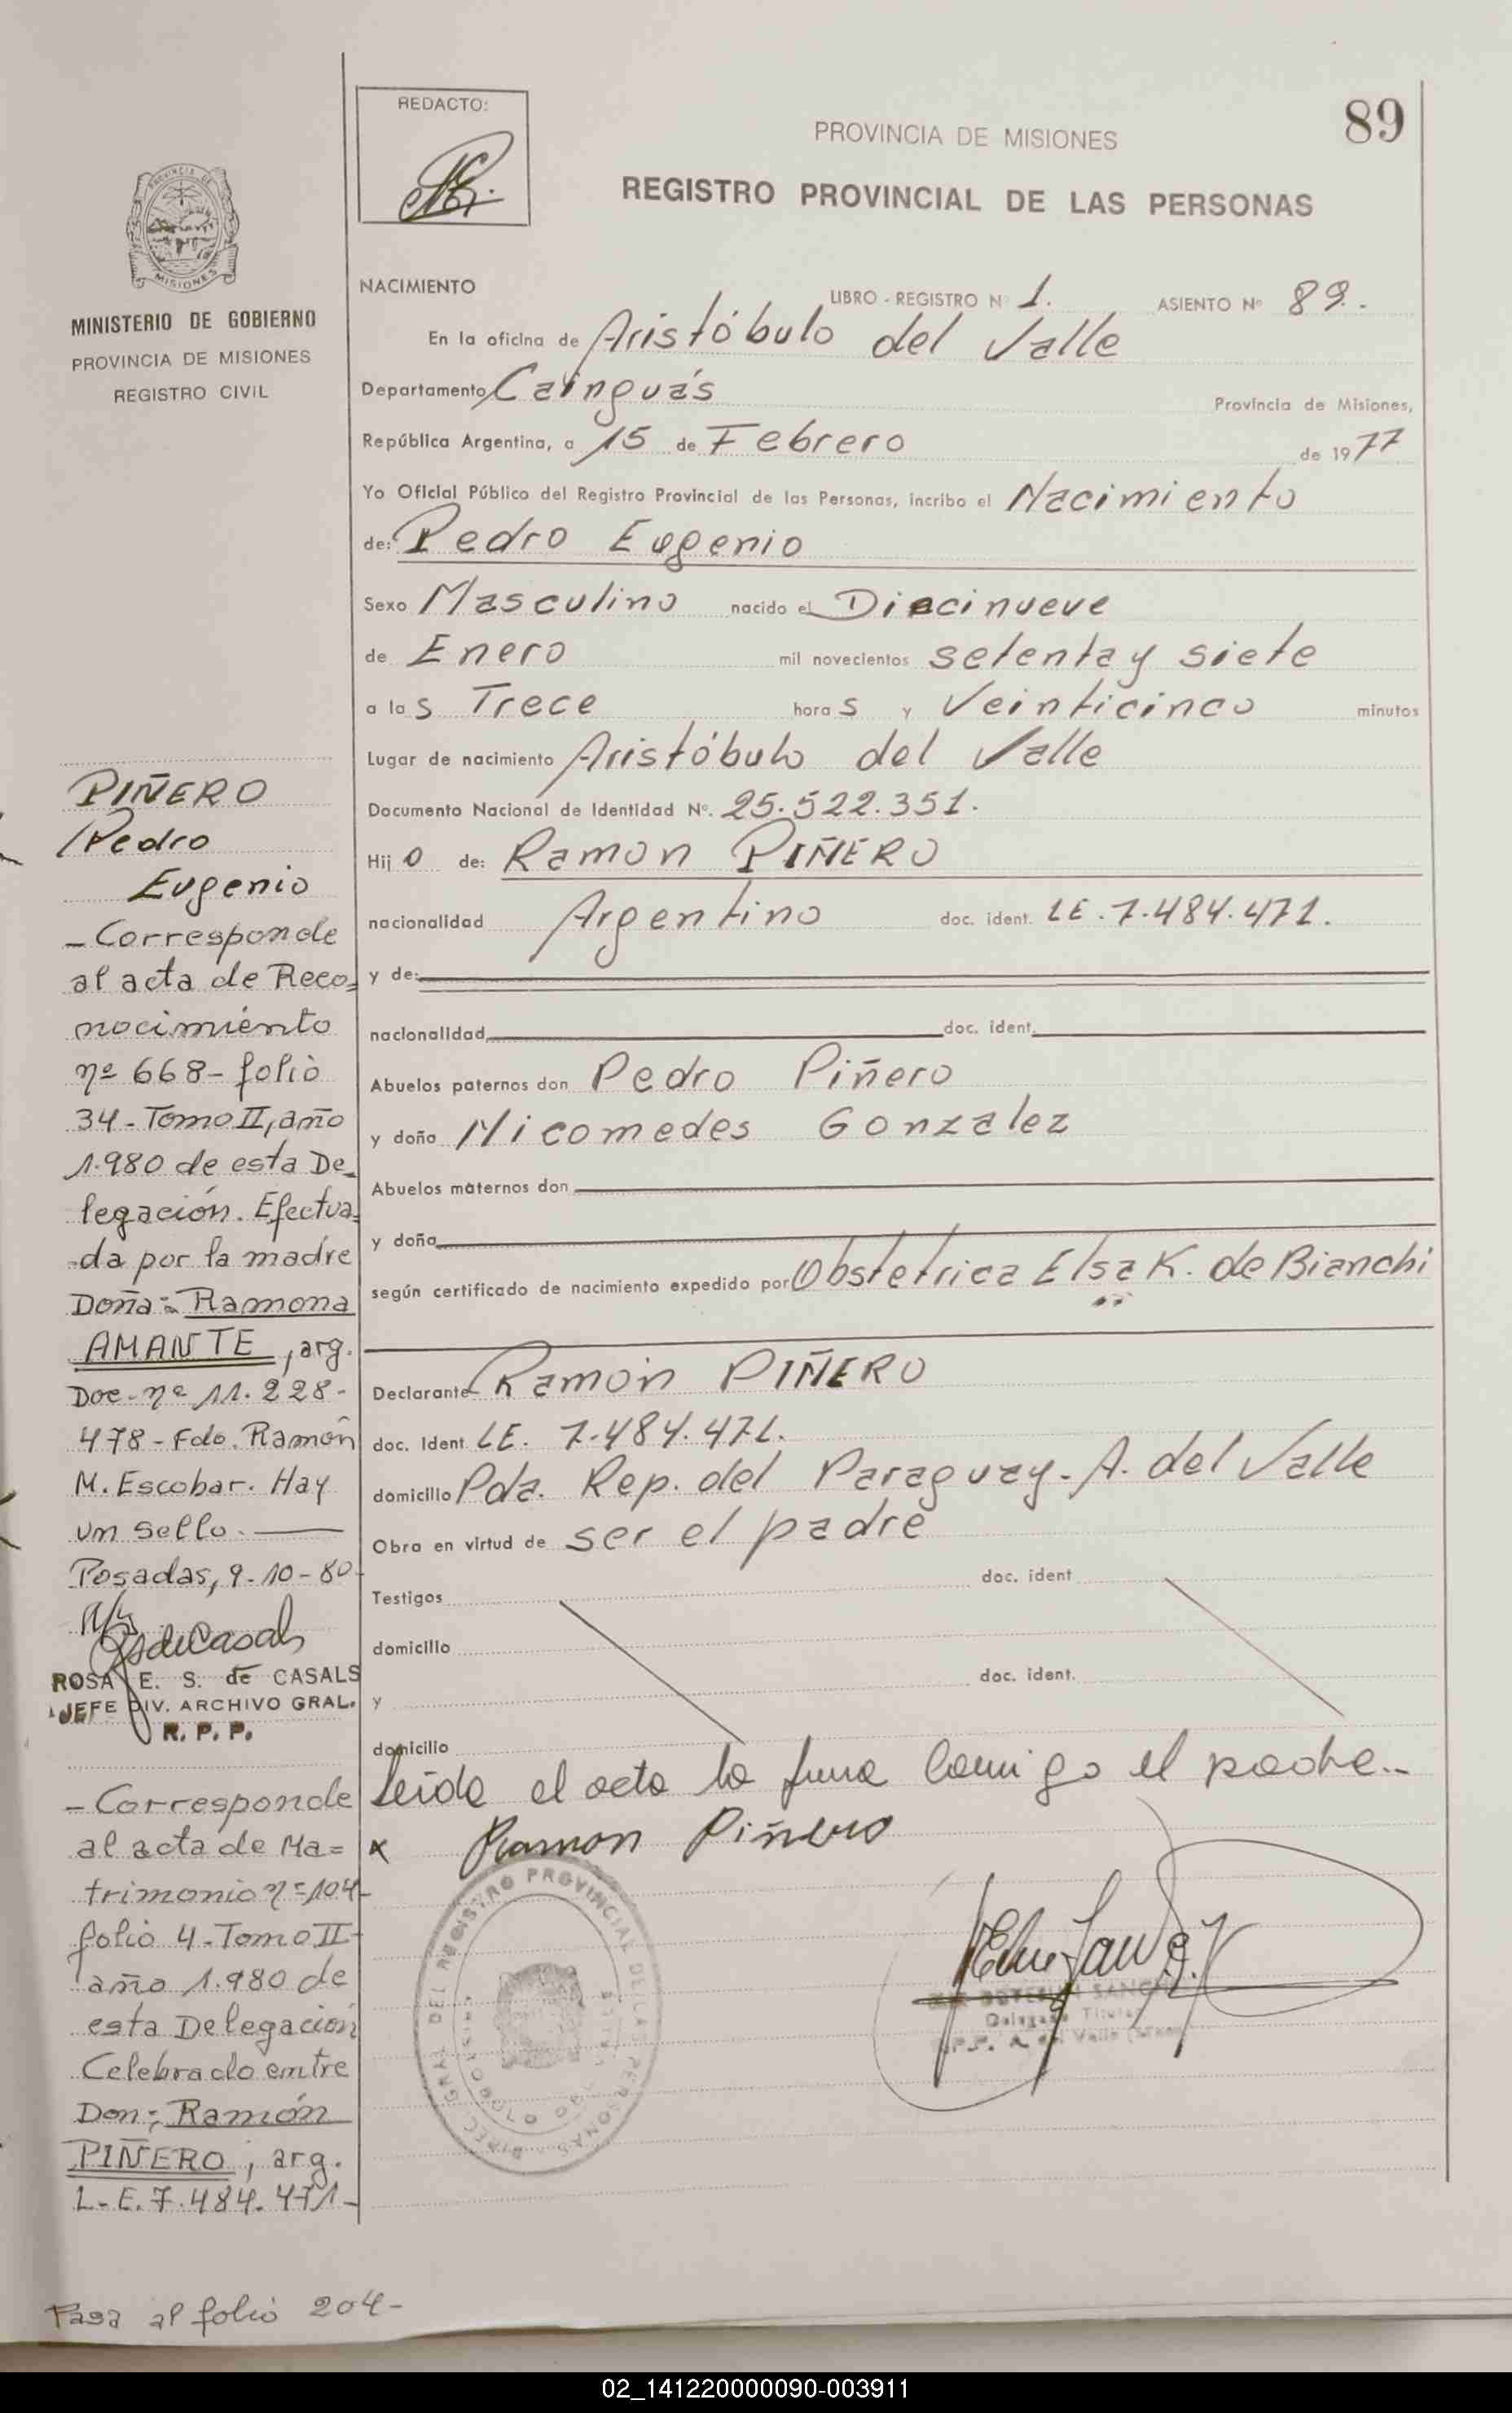 REDACTO:
89
PROVINCIA DE MISIONES
REGISTRO PROVINCIAL DE LAS PERSONAS
PROVINCIA DE
MISIONES
MINISTERIO DE GOBIERNO
PROVINCIA DE MISIONES
REGISTRO CIVIL
NACIMIENTO
LIBRO - REGISTRO Nº 1. ASIENTO Nº 89.-
En la oficina de Aristóbulo del Valle
Departamento Cainguás Provincia de Misiones,
República Argentina, a 15 de Febrero de 1977
Yo Oficial Público del Registro Provincial de las Personas, incribo el Nacimiento
de: Pedro Eugenio
Sexo Masculino nacido el Diecinueve
de Enero mil novecientos setenta y siete
a las Trece horas y Veinticinco minutos
Lugar de nacimiento Aristóbulo del Valle
Documento Nacional de Identidad Nº. 25.522.351.
Hijo de: Ramon PIÑERO
nacionalidad Argentino doc. ident. LE.7.484.471.
y de:
nacionalidad doc. ident.
Abuelos paternos don Pedro Piñero
y doña Nicomedes Gonzalez
Abuelos maternos don
y doña
según certificado de nacimiento expedido por Obstetrica Elsa K. de Bianchi
Declarante Ramón PIÑERO
doc. Ident LE. 7.484.471.
domicilio Pda. Rep. del Paraguay - A. del Valle
Obra en virtud de ser el padre
Testigos doc. ident
domicilio
y doc. ident.
domicilio
Leida el acta la firma conmigo el padre.-
x Ramon Piñero
DIREC. GRAL. DEL REGISTRO PROVINCIAL DE LAS PERSONAS
SANCHEZ
Delegado Titular
R.P.P. A. del Valle
PIÑERO
Pedro
Eugenio
- Corresponde
al acta de Reco=
nocimiento
nº 668 - folio
34 - Tomo II, año
1.980 de esta De_
legación. Efectua=
-da por la madre
Doña:- Ramona
AMANTE, arg.
Doc. nº 11.228-
478 - Fdo. Ramón
M. Escobar. Hay
un sello.
Posadas, 9-10-80
ROSA E. S. de CASALS
JEFE DIV. ARCHIVO GRAL.
R. P. P.
- Corresponde
al acta de Ma=
trimonio nº 104-
folio 4 - Tomo II-
año 1.980 de
esta Delegación
Celebrado entre
Don:- Ramón
PIÑERO, arg.
L.E. 7.484.471-
Pasa al folio 204-
02_141220000090-003911